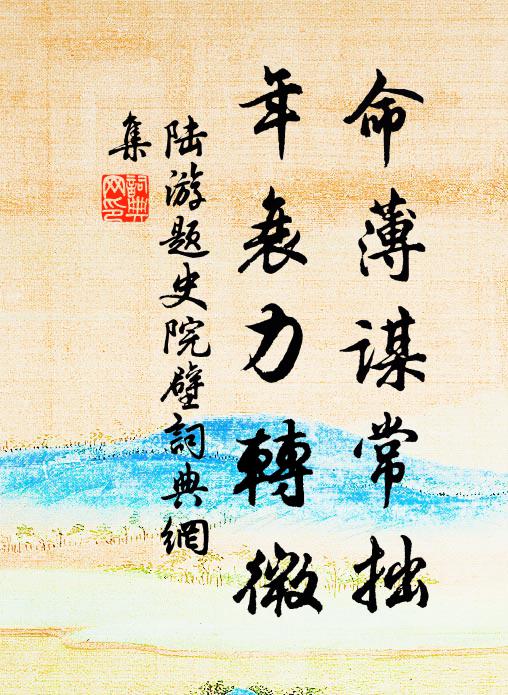 命薄謀常拙
年衰力轉微
陆游题史院壁詞典網
集
詞典
网印